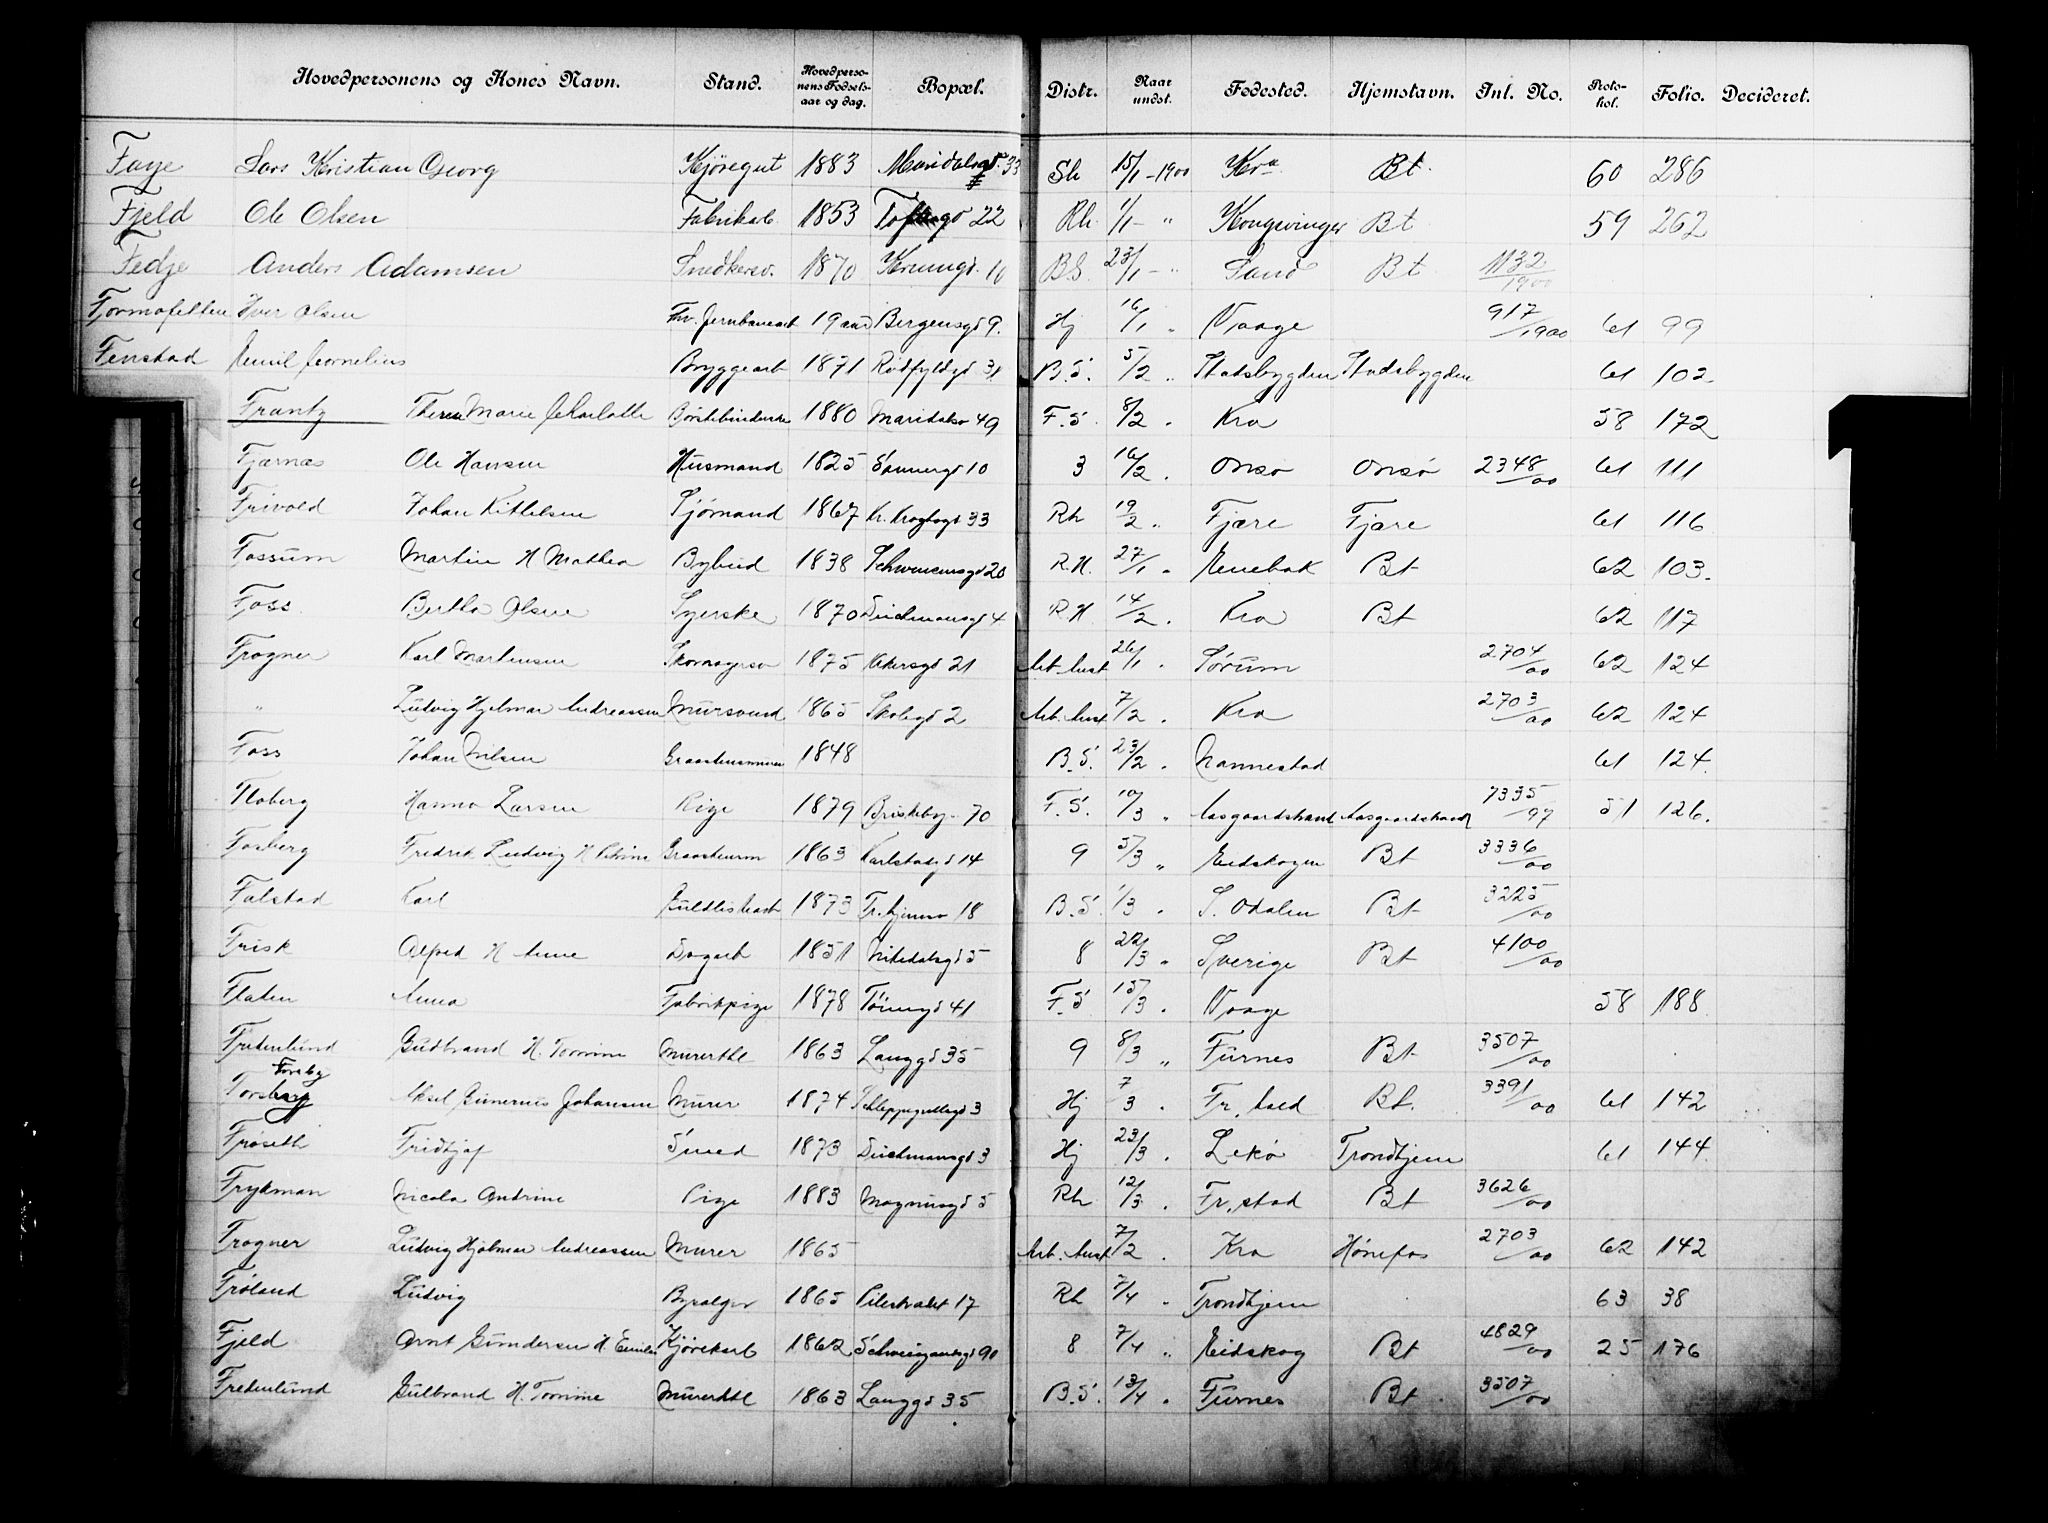 Hovedpersonens og Kones Navn. Stand. Hovedperso-nens Fødsels-aar og dag. Bopæl. Distr. Naar undst. Fødested. Hjemstavn. Inl. No. Proto-kol. Folio. Decideret.
Faye Lars Kristian Georg Kjøregut 1883 Maridalsv. 33 Sk 15/1-1900 Kra Bt. 60 286
Fjeld Ole Olsen Fabrikarb 1853 22 Rh. 1/1- " Kongsvinger Bt 59 262
Fedje Anders Adamsen Snedkersv. 1870 10 B.S. 23/1- " Sand Bt 1132/1900
Iver Olsen Fhv. Jernbanearb 19 aar Bergensgd 9. Hj 16/1 " Vaage 917/1900 61 99
Fenstad Emil Cornelius Bryggearb 1871 Rødfyldgd 31 B.S. 5/2 " Stadsbygden Stadsbygden 61 102
Frantz Marie Charlotte Børstebinderske 1880 Maridalsv 49 F.S. 8/2 " Kra 58 172
Fjærnæs Ole Hansen Husmand 1825 Sannergd 10 3 16/2 " Onsø Onsø 2348/00 61 111
Frivold Johan Kittelsen Sjømand 1867 Kr. Kroghsgd 33 Rh 19/2 " Fjære Fjære 61 116
Fossum Martin H Mathea Bybud 1838 Schwencensgd 20 R.H. 27/1 " Enebak Bt 62 103.
Foss Bertha Olsen Syerske 1870 Deichmansgd 4 R.H. 14/2 " Kra Bt 62 117
Frogner Karl Martinsen Skomagersv 1875 Akersgd 21 Arb. Anst 26/1 " Sørum 2704/00 62 124
" Ludvig Hjelmar Andreassen Mursvend 1865 Skolegd 2 Arb. Anst 7/2 " Kra 2703/00 62 124
Foss Johan Nilsen Graastensmurer 1848 B.S. 23/2 " Nannestad 61 124
Floberg Hanna Larsen Pige 1879 Briskeby. 70 F.S. 10/3 " Aasgaardstrand Aasgaardstrand 7335/97 51 126.
Fosberg Fredrik Ludvig H Petrine Graastensm 1863 Karlstadgd 14 9 5/3 " Eidskogen Bt 3336/00
Falstad Karl Guldlistearb 1873 Tr.hjemsv 18 B.S. 1/3 " S. Odalen Bt 3225/00
Frisk Alfred H Anne Dagarb 1851 Nitedalsgd 5 8 22/3 " Sverige Bt 4100/00
Flaten Anna Fabrikpige 1878 41 F.S 15/3 " Vaage 58 188
Fredenlund Gudbrand H. Tomine Murerhl 1863 Langgd 35 9 8/3 " Furnes Bt 3507/00
Forsby
Aksel Gunerius Johansen Murer 1874 Schleppegrellsgd 3 Hj 7/3 " Fr.hald Bt. 3391/00 61 142
Frøseth Fridtjof Smed 1873 Deichmansgd 3 Hj 23/3 " Lekø Trondhjem 61 144
Frykman Nicola Andrine Pige 1883 Magnusgd 5 Rh 12/3 " Fr.stad Bt 3626/00
Frogner Ludvig Hjalmar Andreassen Murer 1865 Arb. Anst 7/2 " Kra Hønefos 2703/00 62 142
Frøland Ludvig 1865 Pilestrædet 17 Rh 7/4 " Trondhjem 63 38
Fjeld Arnt Gundersen H Emilie Kjørekarl 1862 Schweigaardsgd 90 8 7/4 " Eidskog Bt 4829/00 25 176
Fredenlund Gulbrand H. Tomine Murerhl 1863 Langgd 35 B.S. 13/4 " Furnes Bt 3507/00